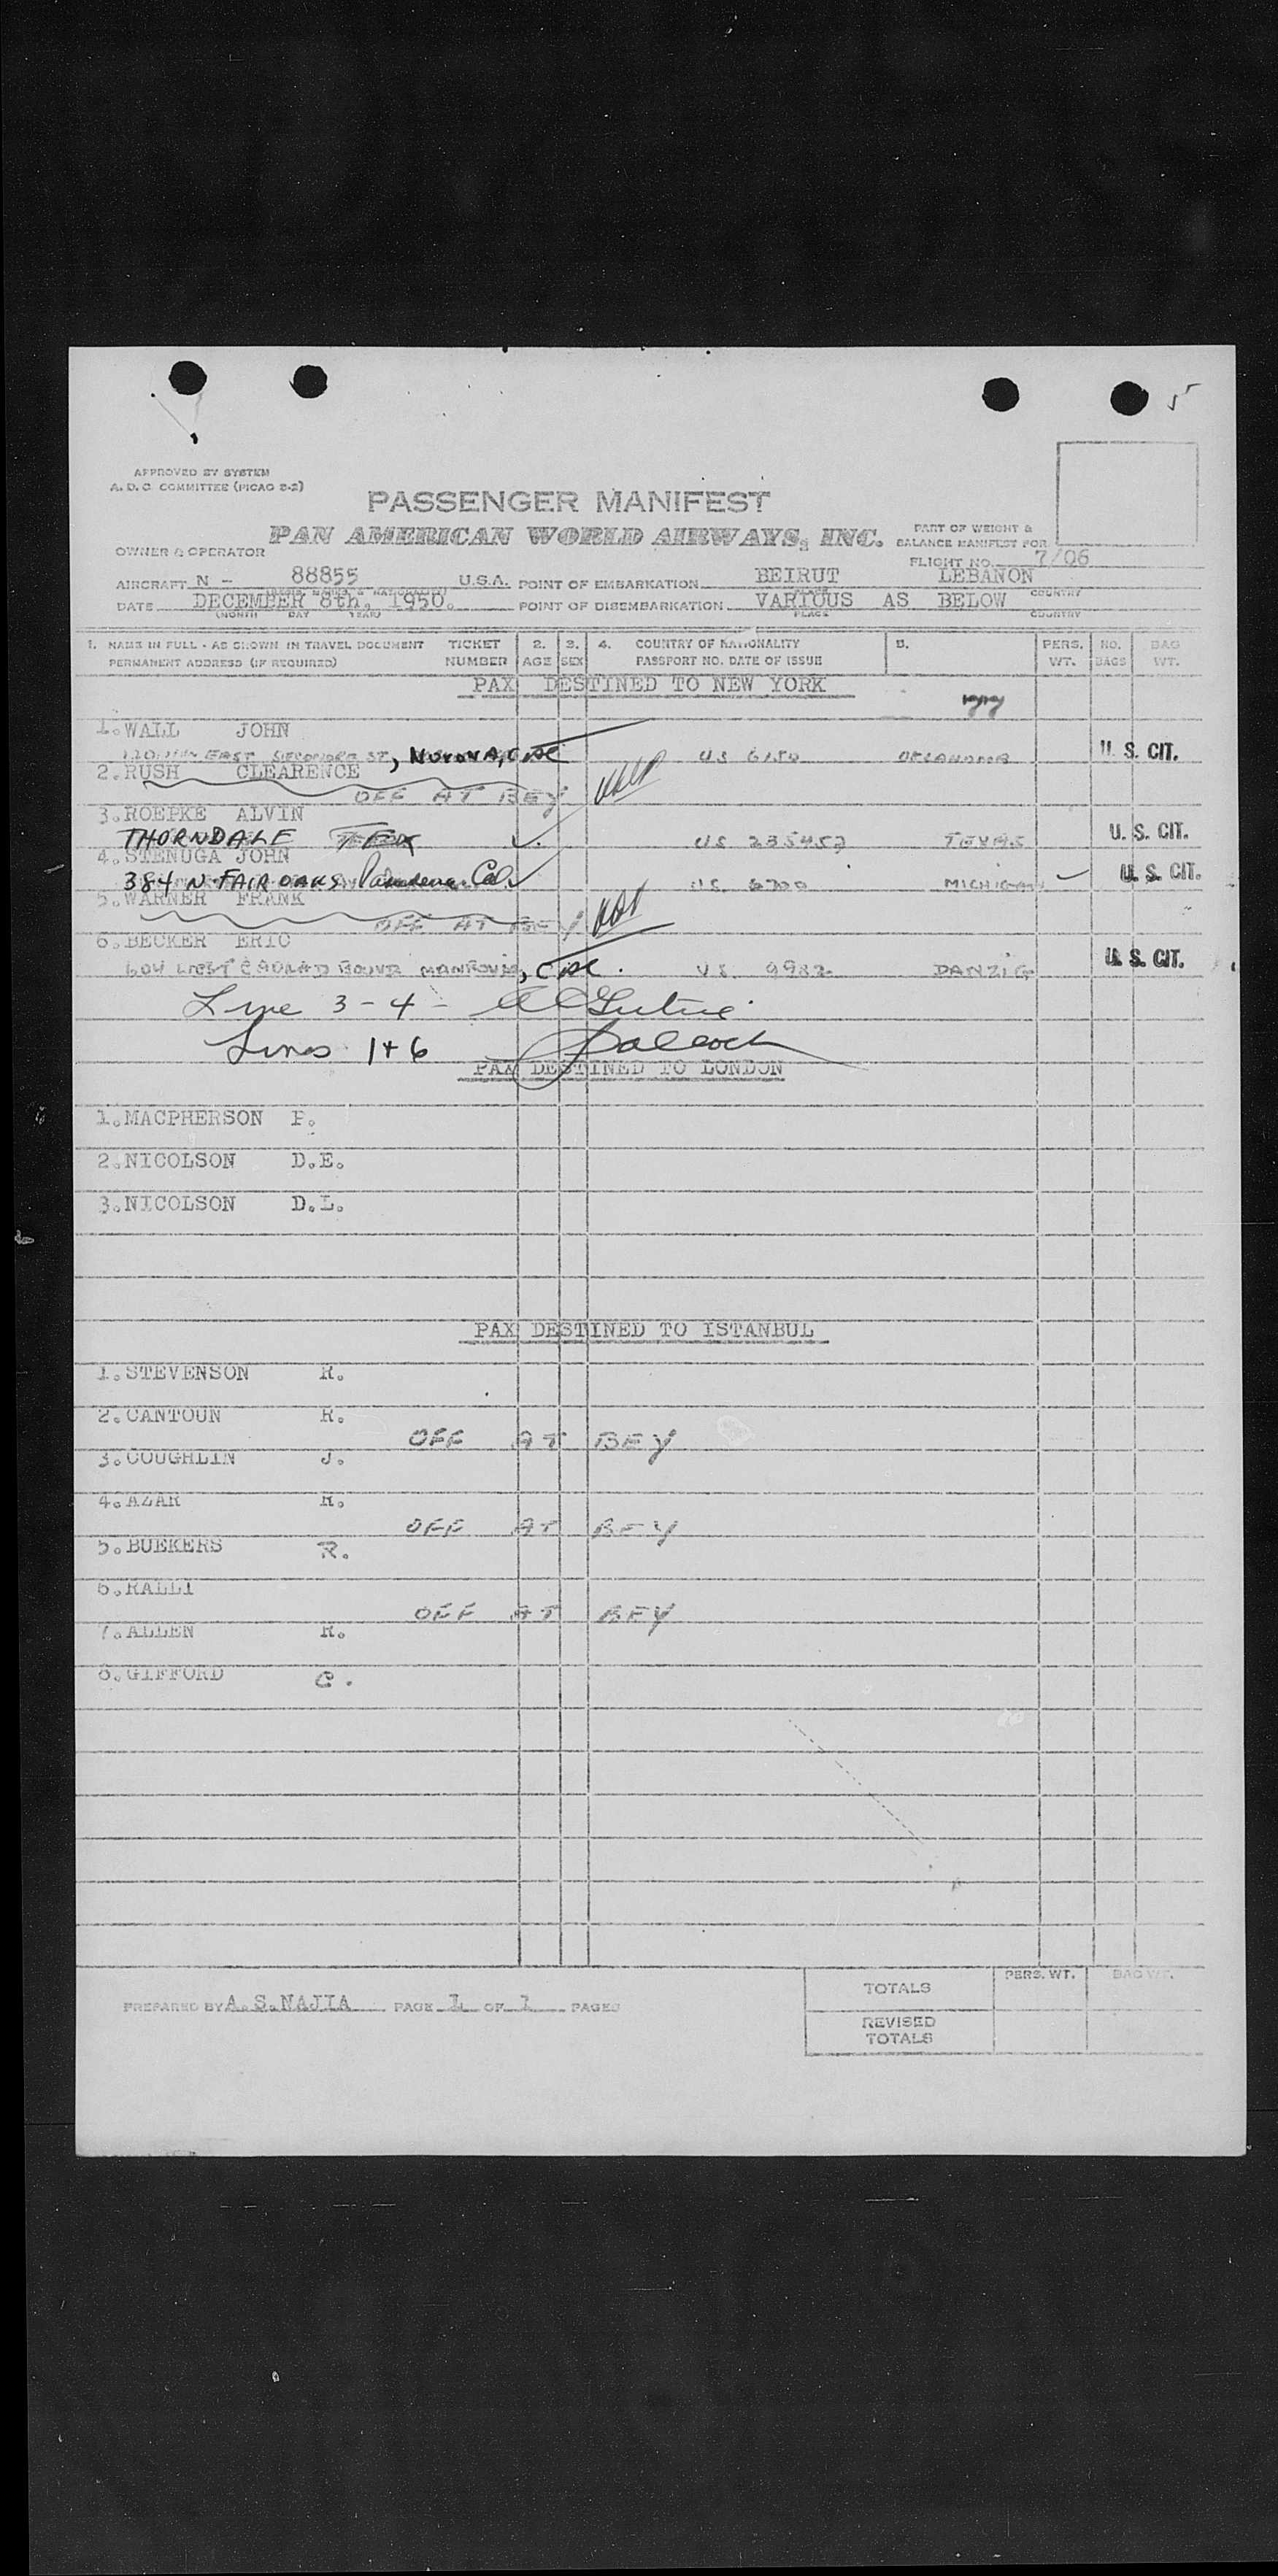 5
APPROVED BY SYSTEM
A. D. C. COMMITTEE (PICAO S-2)
PASSENGER MANIFEST
PAN AMERICAN WORLD AIRWAYS, INC.
PART OF WEIGHT &
BALANCE MANIFEST FOR
OWNER & OPERATOR
FLIGHT NO. 7/06
AIRCRAFT N - 88855 U.S.A. POINT OF EMBARKATION BEIRUT LEBANON
COUNTRY
DATE DECEMBER 8th, 1950. POINT OF DISEMBARKATION VARIOUS AS BELOW
(MONTH DAY YEAR) PLACE COUNTRY
1. NAME IN FULL - AS SHOWN IN TRAVEL DOCUMENT TICKET 2. 3. 4. COUNTRY OF NATIONALITY 5. PERS. NO. BAG
PERMANENT ADDRESS (IF REQUIRED) NUMBER AGE SEX PASSPORT NO. DATE OF ISSUE WT. BAGS WT.
PAX DESTINED TO NEW YORK
1. WALL JOHN
EAST ST, CAL US OKLAHOMA U. S. CIT.
2. RUSH CLEARENCE
OFF AT BEY
3. ROEPKE ALVIN
THORNDALE TEX US 235457 TEXAS U. S. CIT.
4. STENUGA JOHN
384 N. FAIR OAKS Pasadena Cal. US 6700 MICHIGAN U. S. CIT.
5. WARNER FRANK
OFF AT BEY
6. BECKER ERIC
604 WEST, CAL. US 9982 DANZIG U. S. CIT.
Line 3-4 -
Lines 1+6
PAX DESTINED TO LONDON
1. MACPHERSON P.
2. NICOLSON D.E.
3. NICOLSON D.L.
PAX DESTINED TO ISTANBUL
1. STEVENSON R.
2. CANTOUN R.
OFF AT BEY
3. COUGHLIN J.
4. AZAR R.
OFF AT BEY
5. BUEKERS R.
6. RALLI
OFF AT BEY
7. ALLEN R.
8. GIFFORD C.
PERS. WT. BAG WT.
TOTALS
PREPARED BY A. S. NAJIA PAGE 1 OF 1 PAGES
REVISED
TOTALS